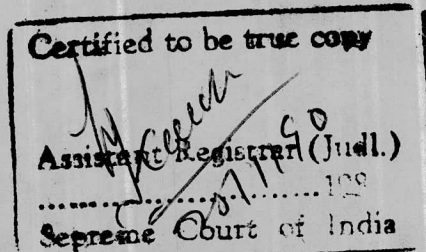 Certified to be true copy
Assistant Registrar (Judl.)
Supreme Court of India